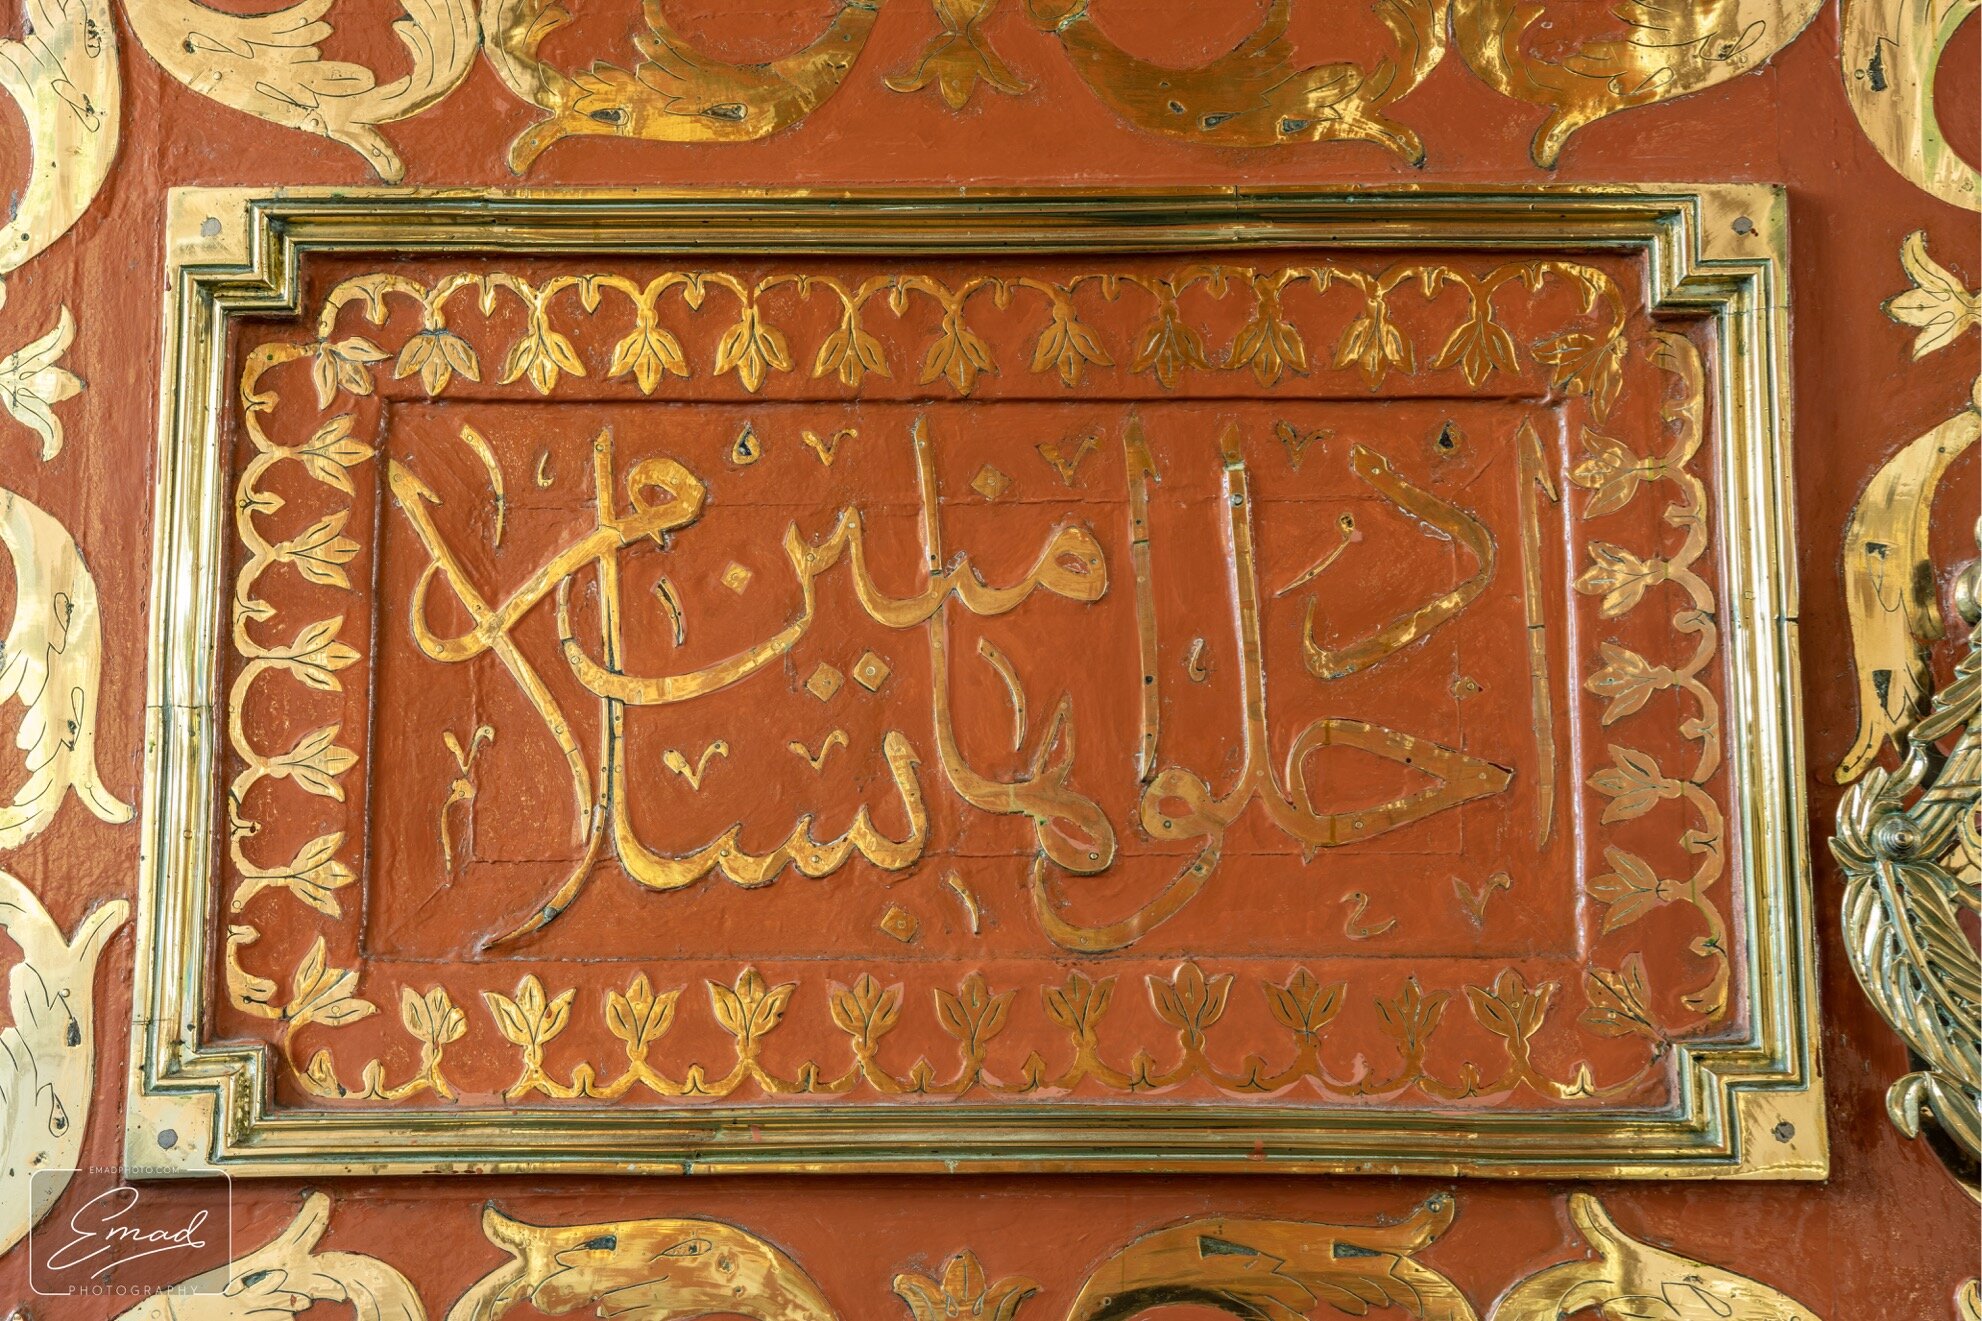 ادخلوها بسلام امنين
EMADPHOTO.COM
Emad
PHOTOGRAPHY